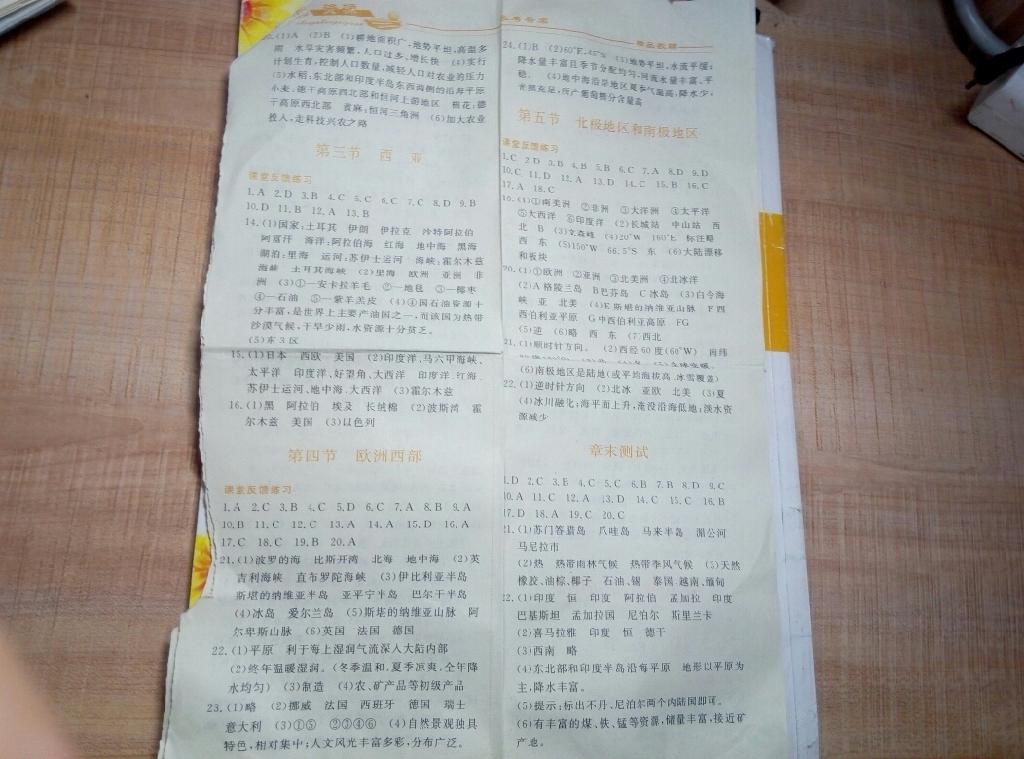 参考答案
精品教辅
(1)A (2)B (3)耕地面积广,地势平坦,高温多
雨 水旱灾害频繁,人口过多,增长快 (4)实行
计划生育,控制人口数量,减轻人口对农业的压力
(5)水稻:东北部和印度半岛东西两侧的沿海平原
小麦:德干高原西北部和恒河上游地区 棉花:德
干高原西北部 黄麻:恒河三角洲 (6)加大农业
投入,走科技兴农之路
第三节 西 亚
课堂反馈练习
1.A 2.D 3.B 4.C 5.C 6.C 7.C 8.D 9.B
10.D 11.B 12.A 13.B
14.(1)国家:土耳其 伊朗 伊拉克 沙特阿拉伯
阿富汗 海洋:阿拉伯海 红海 地中海 黑海
湖泊:里海 运河:苏伊士运河 海峡:霍尔木兹
海峡 土耳其海峡 (2)里海 欧洲 亚洲 非
洲 (3)①—安卡拉羊毛 ②—地毯 ③—椰枣
④—石油 ⑤—紫羔羔皮 (4)④国石油资源十
分丰富,是世界上主要产油国之一,而该国为热带
沙漠气候,干旱少雨,水资源十分贫乏。
(5)东3区
15.(1)日本 西欧 美国 (2)印度洋、马六甲海峡、
太平洋 印度洋、好望角、大西洋 印度洋、红海、
苏伊士运河、地中海、大西洋 (3)霍尔木兹
16.(1)黑 阿拉伯 埃及 长绒棉 (2)波斯湾 霍
尔木兹 美国 (3)以色列
第四节 欧洲西部
课堂反馈练习
1.A 2.C 3.B 4.C 5.D 6.C 7.A 8.B 9.A
10.B 11.C 12.C 13.A 14.A 15.D 16.A
17.C 18.C 19.B 20.A
21.(1)波罗的海 比斯开湾 北海 地中海 (2)英
吉利海峡 直布罗陀海峡 (3)伊比利亚半岛
斯堪的纳维亚半岛 亚平宁半岛 巴尔干半岛
(4)冰岛 爱尔兰岛 (5)斯堪的纳维亚山脉 阿
尔卑斯山脉 (6)英国 法国 德国
22.(1)平原 利于海上湿润气流深入大陆内部
(2)终年温暖湿润。(冬季温和,夏季凉爽,全年降
水均匀) (3)制造 (4)农、矿产品等初级产品
23.(1)略 (2)挪威 法国 西班牙 德国 瑞士
意大利 (3)①⑤ ②③④⑥ (4)自然景观独具
特色,相对集中;人文风光丰富多彩,分布广泛。
24.(1)B (2)60°E,45°N (3)地势平坦,水流平缓;
降水量丰富且季节分配均匀,河流水量丰富、平
稳。 (4)地中海沿岸地区夏季气温高,降水少,
光照充足,所产葡萄糖分含量高
第五节 北极地区和南极地区
课堂反馈练习
1.C 2.D 3.B 4.B 5.B 6.C 7.A 8.D 9.D
10.C 11.D 12.A 13.D 14.C 15.B 16.C
17.A 18.C
19.(1)①南美洲 ②非洲 ③大洋洲 ④太平洋
⑤大西洋 ⑥印度洋 (2)长城站 中山站 西
北 B (3)文森峰 (4)20°W 160°E 标注略
西 东 (5)150°W 66.5°S 东 (6)大陆漂移
和板块
20.(1)①欧洲 ②亚洲 ③北美洲 ④北冰洋
(2)A格陵兰岛 B巴芬岛 C冰岛 (3)白令海
峡 亚 北美 (4)E斯堪的纳维亚山脉 F西
西伯利亚平原 G中西伯利亚高原 FG
(5)逆 (6)略 西 东 (7)西北
21.(1)顺时针方向。 (2)西经60度(60°W) 南纬
(6)南极地区是陆地(或平均海拔高,冰雪覆盖)
22.(1)逆时针方向 (2)北冰 亚欧 北美 (3)夏
(4)冰川融化;海平面上升,淹没沿海低地;淡水资
源减少
章末测试
1.D 2.C 3.B 4.C 5.C 6.B 7.B 8.D 9.C
10.A 11.C 12.A 13.D 14.C 15.C 16.B
17.D 18.A 19.C 20.C
21.(1)苏门答腊岛 爪哇岛 马来半岛 湄公河
马尼拉市
(2)热 热带雨林气候 热带季风气候 (5)天然
橡胶、油棕、椰子 石油、锡 泰国、越南、缅甸
22.(1)印度 恒 印度 阿拉伯 孟加拉 印度
巴基斯坦 孟加拉国 尼泊尔 斯里兰卡
(2)喜马拉雅 印度 恒 德干
(3)西南 略
(4)东北部和印度半岛沿每平原 地形以平原为
主,降水丰富。
(5)提示:标出不丹、尼泊尔两个内陆国即可。
(6)有丰富的煤、铁、锰等资源,储量丰富,接近矿
产地。